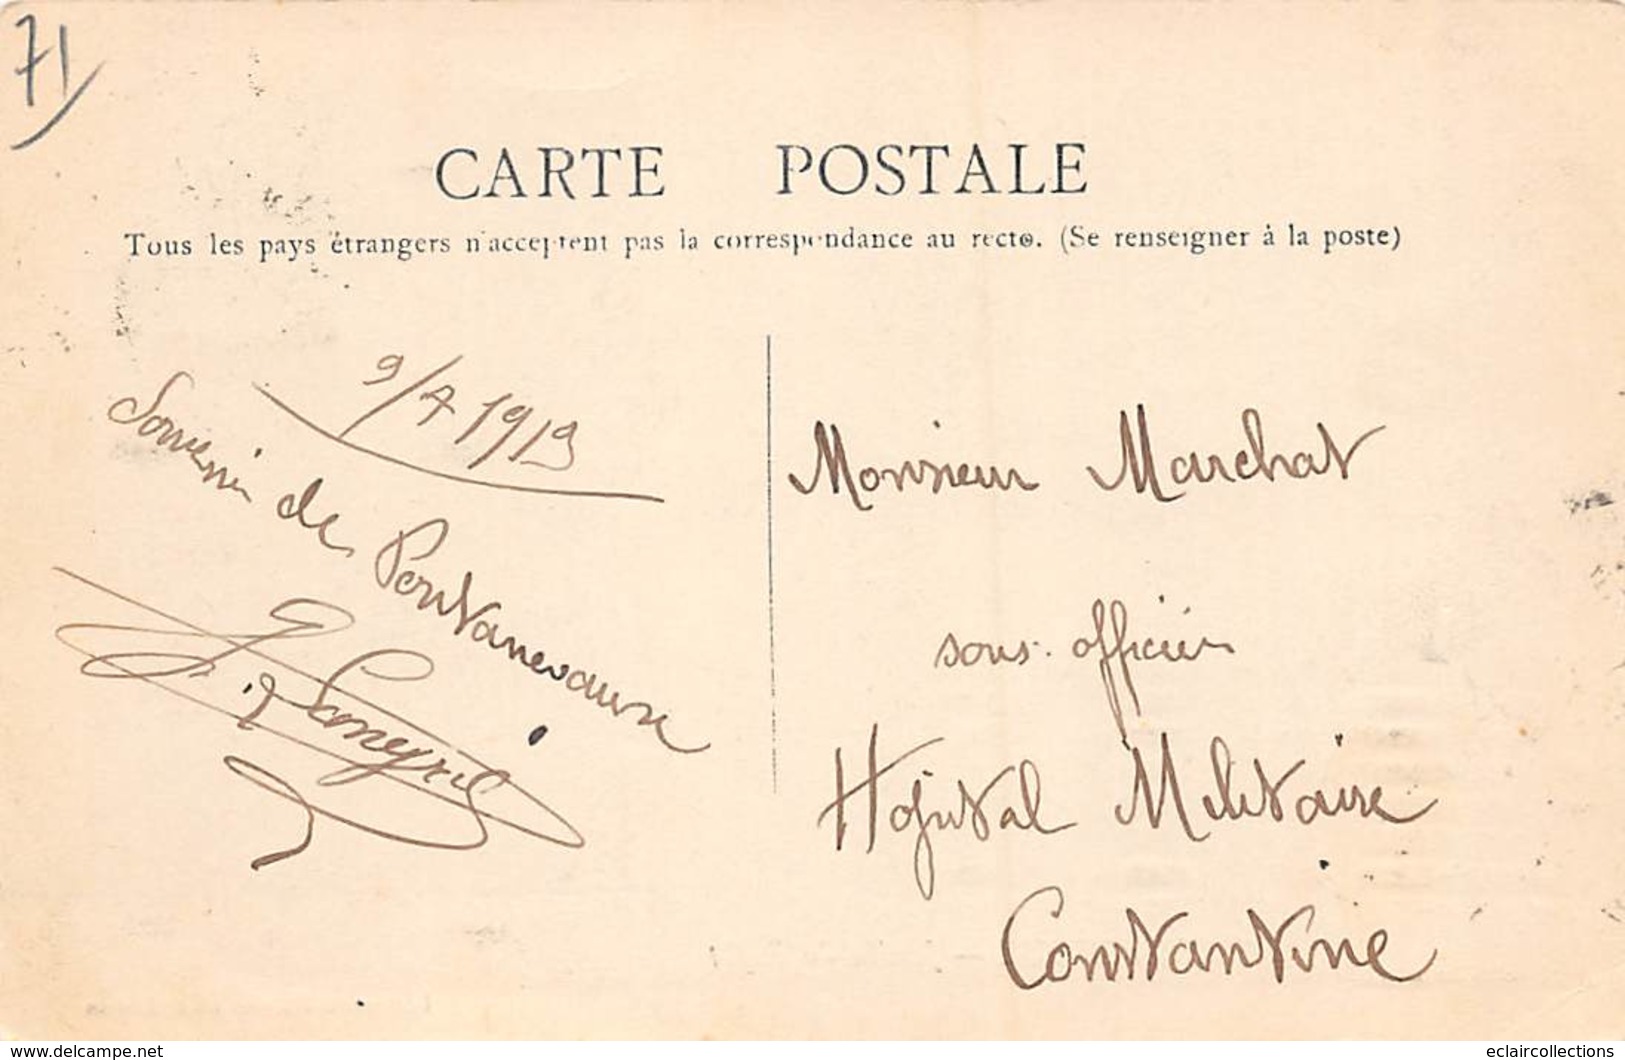 71
CARTE POSTALE
Tous les pays étrangers n'acceptent pas la correspondance au recto. (Se renseigner à la poste)
9/7 1913
Souvenir de Pontanevaux
Monsieur Marchat
sous-officier
Hôpital Militaire
Constantine
www.delcampe.net
eclaircollections